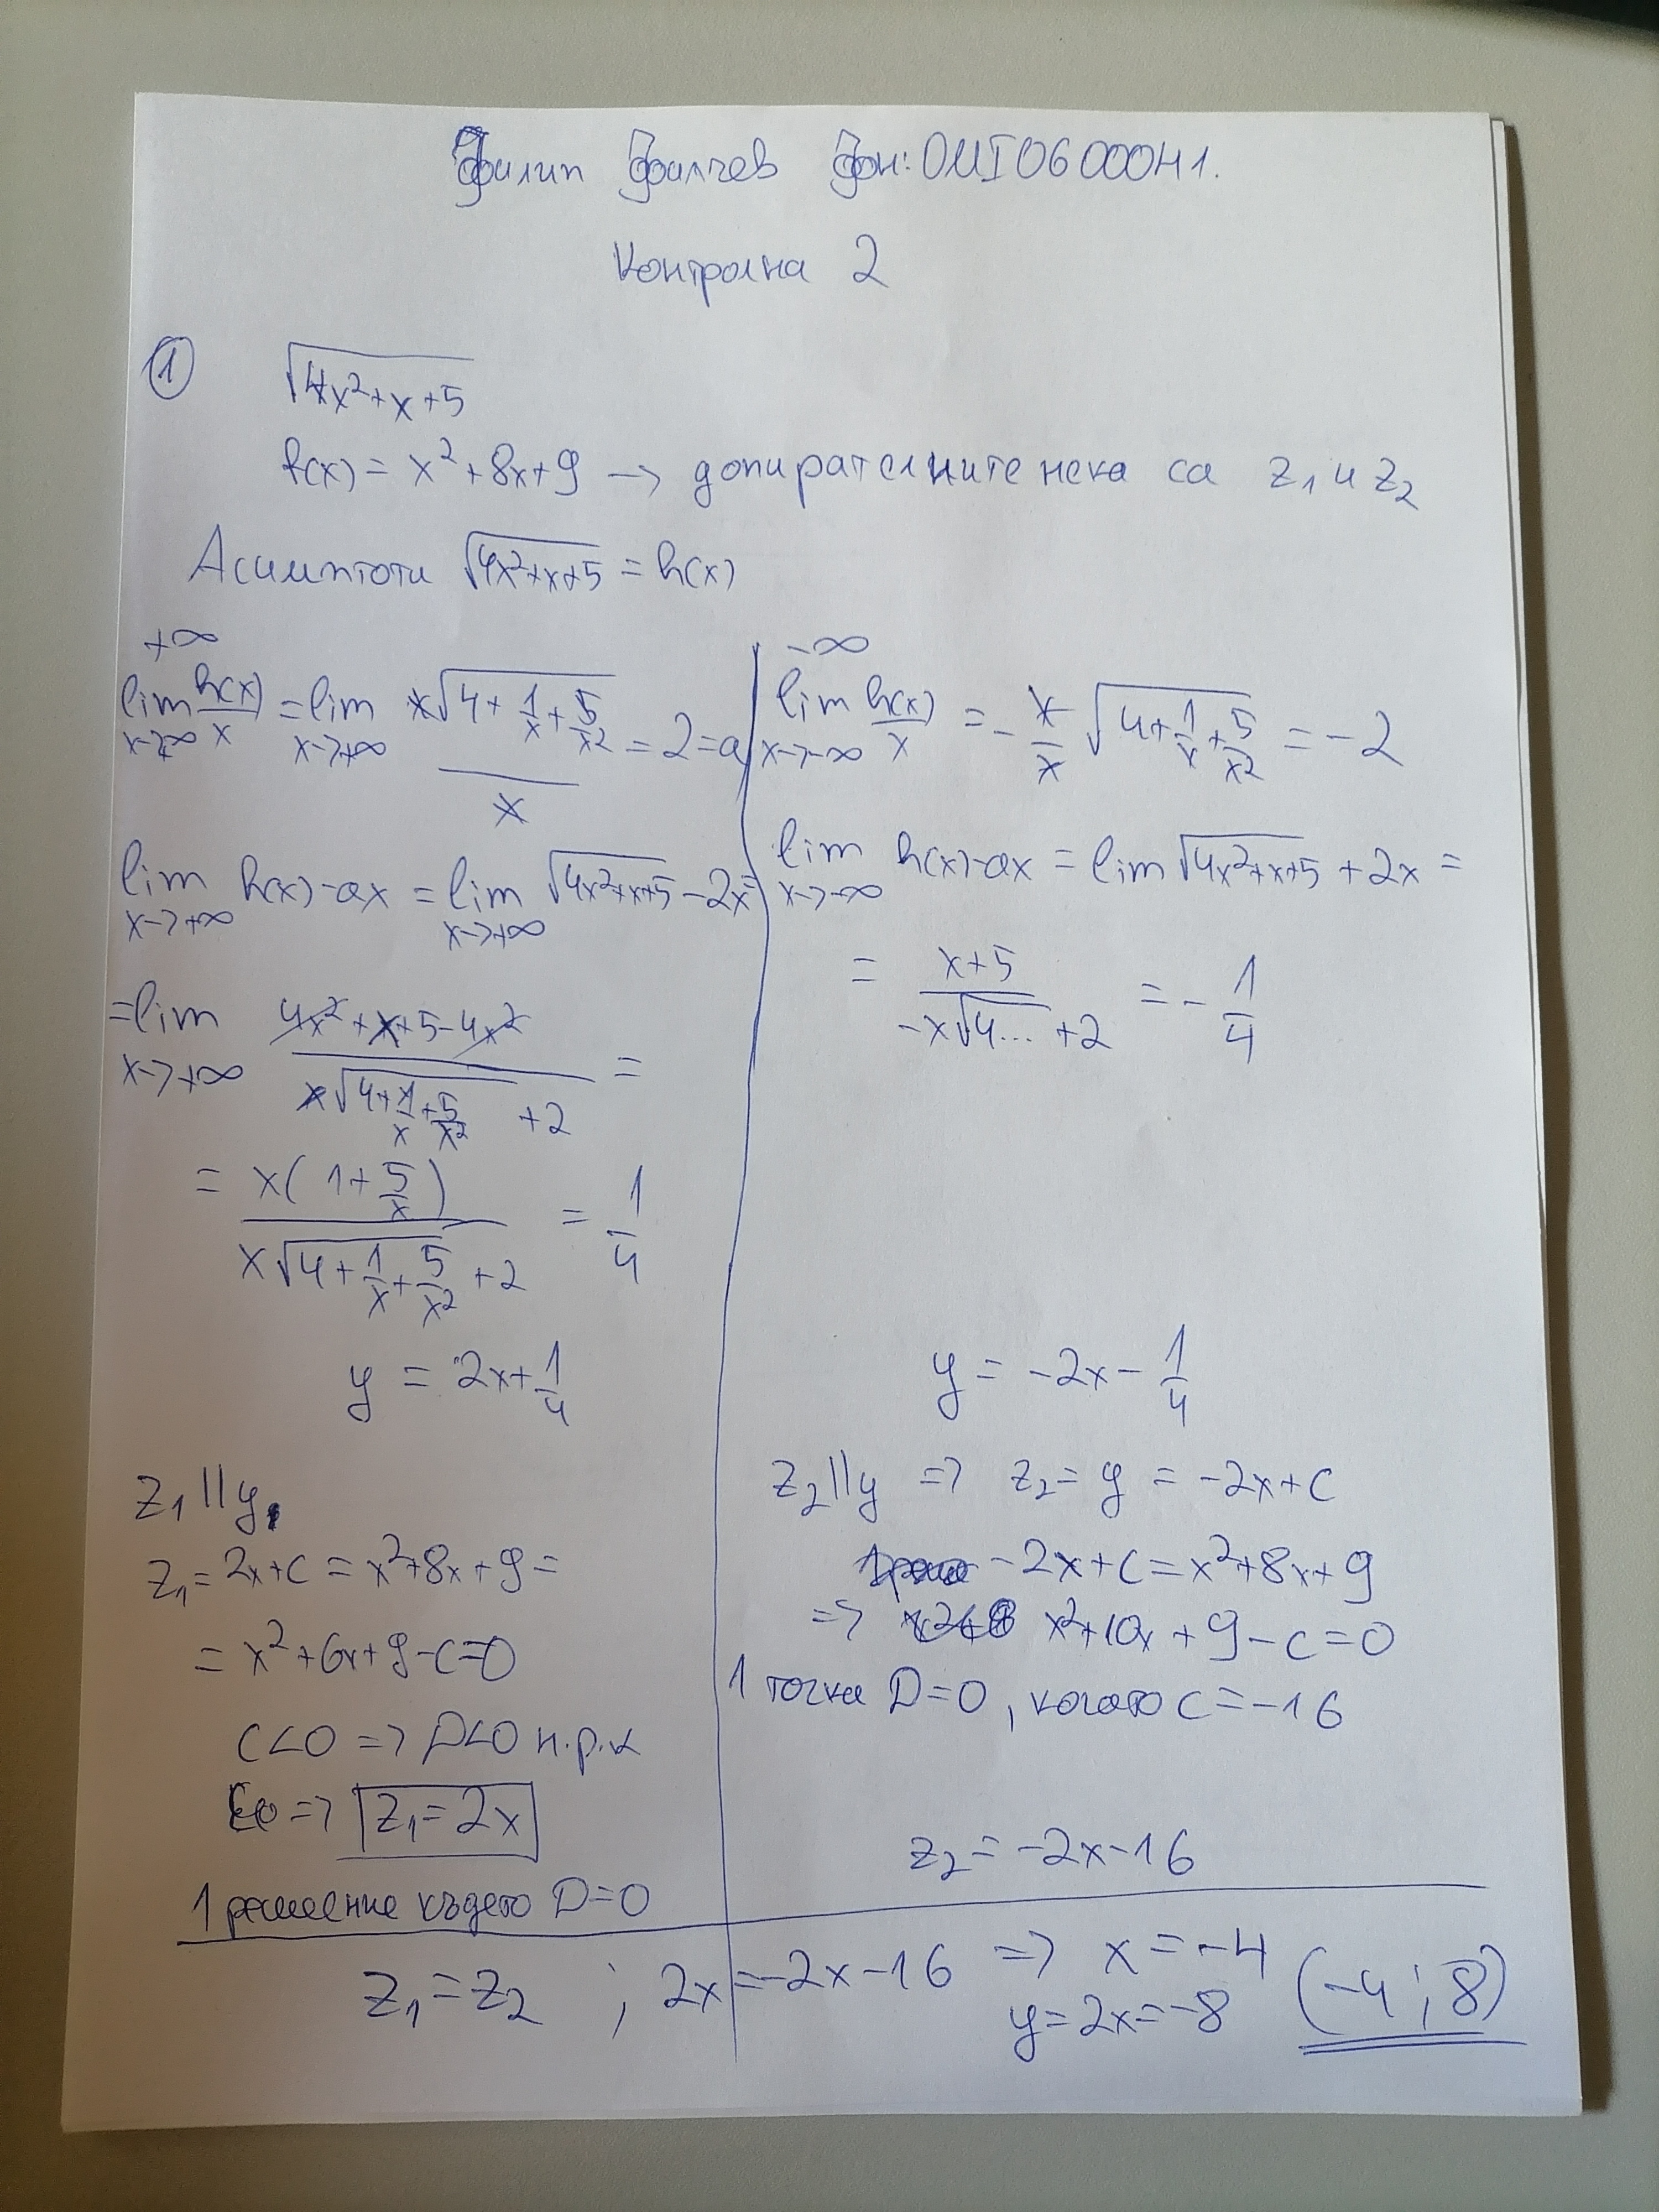 Филип Филчев фон: 0MI0600041.
Контролна 2
① √(4x²+x+5)
h(x) = x²+8x+9 → допирателните нека са z₁ и z₂
Асимптоти √(4x²+x+5) = h(x)
+∞
lim x→∞ h(x)/x = lim x→+∞ x√(4+1/x+5/x²)/x = 2 = a
lim x→+∞ h(x)-ax = lim x→+∞ √(4x²+x+5) - 2x =
= lim x→+∞ (4x²+x+5-4x²)/(x√(4+1/x+5/x²) +2) =
= x(1+5/x)/(x√(4+1/x+5/x²) +2) = 1/4
y = 2x+1/4
z₁ || y₁
z₁ = 2x+c = x²+8x+9 =
= x²+6x+9-c=0
c<0 => D<0 н.р.к
=> z₁=2x
1 решение където D=0
-∞
lim x→-∞ h(x)/x = -x/x √(4+1/x+5/x²) = -2
lim x→-∞ h(x)-ax = lim √(4x²+x+5) + 2x =
= (x+5)/(-x√4... +2) = -1/4
y = -2x - 1/4
z₂ || y => z₂ = y = -2x+c
-2x+c = x²+8x+9
=> x²+10x+9-c=0
1 точка D=0, когато c=-16
z₂ = -2x-16
z₁=z₂ ; 2x=-2x-16 => x=-4
y=2x=-8 (-4; 8)